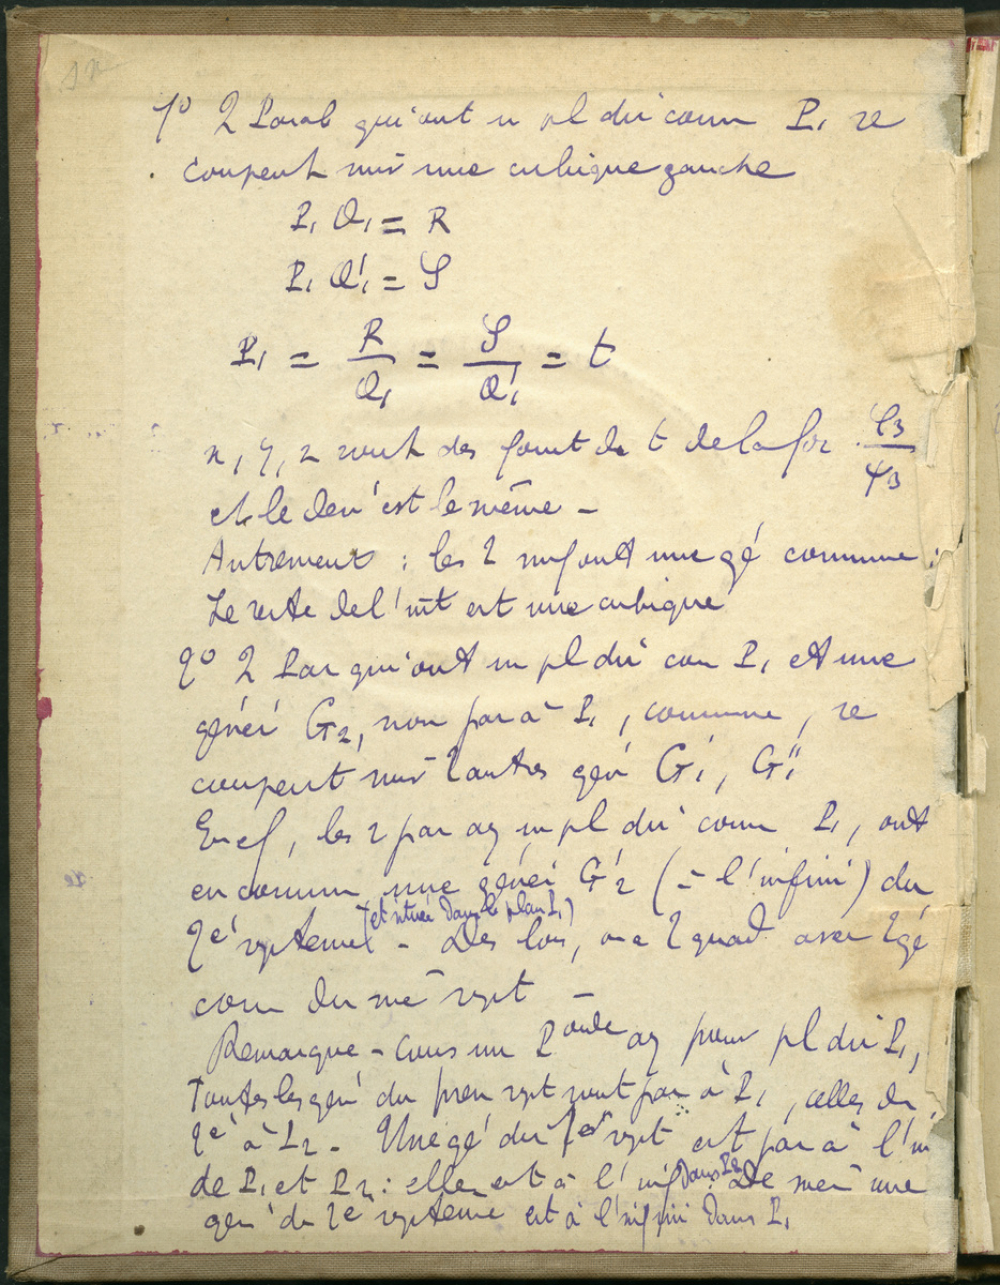 1º 2 Parab qui ont u pl dir comm P₁ se
coupent suiv une cubique gauche
P₁ Q₁ = R
P₁ Q'₁ = S
P₁ = R/Q₁ = S/Q'₁ = t
x, y, z sont des fonct de t de la for φ₃/ψ₃
et le den' est le même –
Autrement : les 2 surf ont une gé commune :
Le reste de l'int est une cubique
2º 2 Par qui ont un pl dir com P₁ et une
génér G₂, non par à P₁, commune, se
coupent suiv 2 autres gén G'₁, G''₁
En ef, les 2 par ay un pl dir comm P₁, ont
en commun une génér G'₂ (à l'infini) du
2e système (et située dans le plan P₁) – Dès lors, on a 2 quad. avec 2 gé
com du mê syst –
Remarque – Dans un P ay pour pl dir P₁,
Toutes les gén du prem syst sont par à P₁, celles du
2e à P₂ – Une gé du 1er syst est par à l'in
de P₁ et P₂ : elle est à l'inf dans P₂ De mê une
gén du 2e système est à l'infini dans P₁